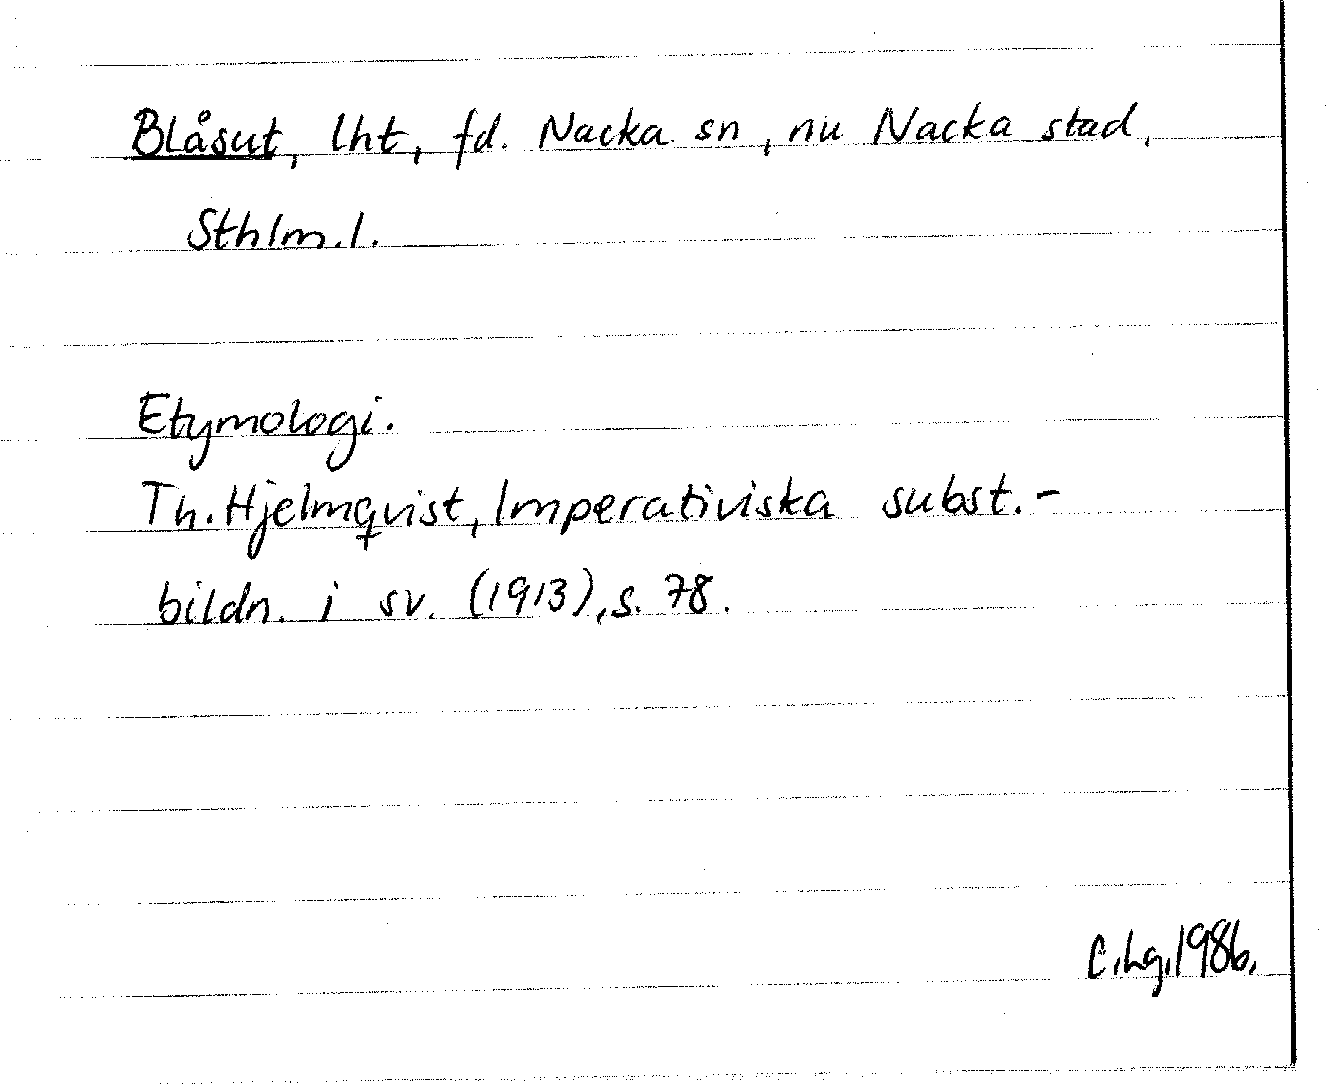 Blåsut, lht, fd. Nacka sn, nu Nacka stad,
Sthlm.l.
Etymologi.
Th. Hjelmqvist, Imperativiska subst.-
bildn. i sv. (1913), s. 78.
C.Lg.1986.